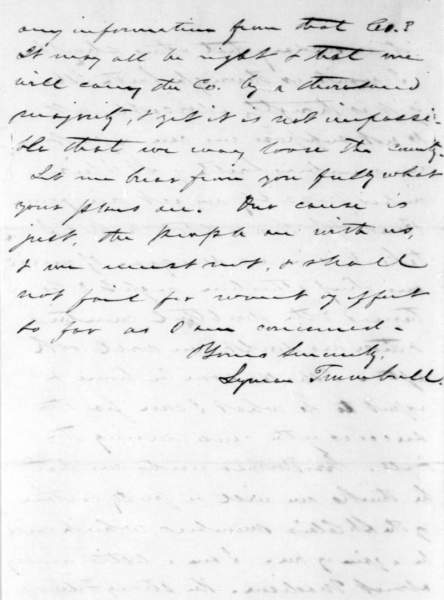 any information from that Co.?
It may all be right & that we
will carry the Co. by a thousand
majority, & yet it is not impossi-
ble that we may loose the county.
Let me hear from you fully what
your plans are. Our cause is
just, the people are with us,
& we must not, & shall
not fail for want of effort
so far as I am concerned.
Yours Sincerely,
Lyman Trumbull.